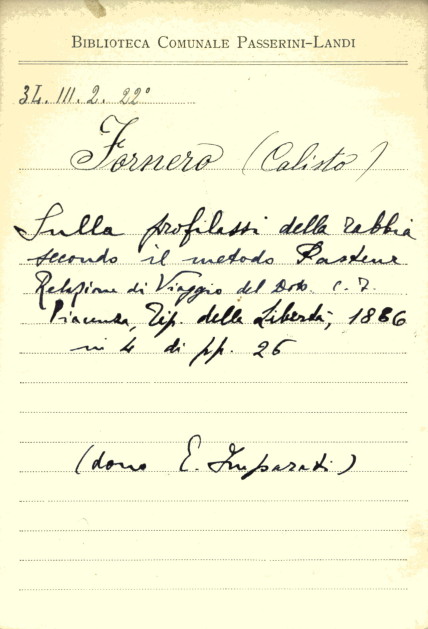 BIBLIOTECA COMUNALE PASSERINI-LANDI
3L. III. 2. 22°
Fornero (Calisto)
Sulla profilassi della rabbia
secondo il metodo Pasteur
Relazione di Viaggio del Dott. C. F.
Piacenza, Tip. della Libertà, 1886
in 4 di pp. 26
(dono E. Imparati)